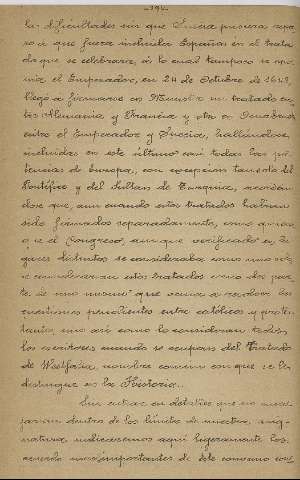 -194-
las dificultades sin que Suecia pusiera repa-
ro á que fuera incluida España en el trata-
do que se celebraria, á lo cual tampoco se opo-
nia el Emperador, en 24 de Octubre de 1648,
llegó á firmarse en Munster un tratado en-
tre Alemania y Francia y otro en Osnabruck
entre el Emperador y Suecia, hallándose
incluidas en este último casi todas las po-
tencias de Europa, con excepcion tan solo del
Pontífice y del Sultan de Turquia, acordán-
dose que, aun cuando estos tratados habian
sido firmados separadamente, como quiera
que el Congreso, aunque verificado en lu-
gares distintos se consideraba como uno solo,
se consideraran estos tratados como dos par-
tes de uno mismo que venia á resolver las
cuestiones pendientes entre católicos y protes-
tantes, y es así como lo consideran todos
los escritores cuando se ocupan del Tratado
de Westfalia, nombre comun con que se le
distingue en la Historia.
Sin entrar en detalles que no enca-
jarian dentro de los límites de nuestra asig-
natura indicaremos aquí ligeramente los
acuerdos mas importantes de este convenio con-